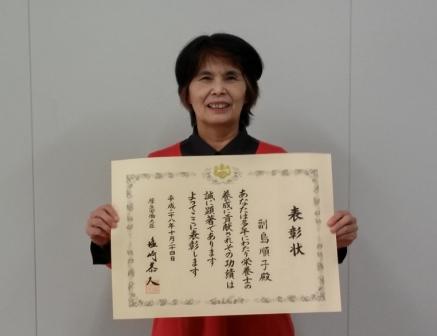 表彰状
副島順子殿
あなたは多年にわたり栄養士の
養成に貢献されその功績は
誠に顕著であります
よってここに表彰します
平成二十八年十月二十四日
厚生労働大臣 塩崎恭久